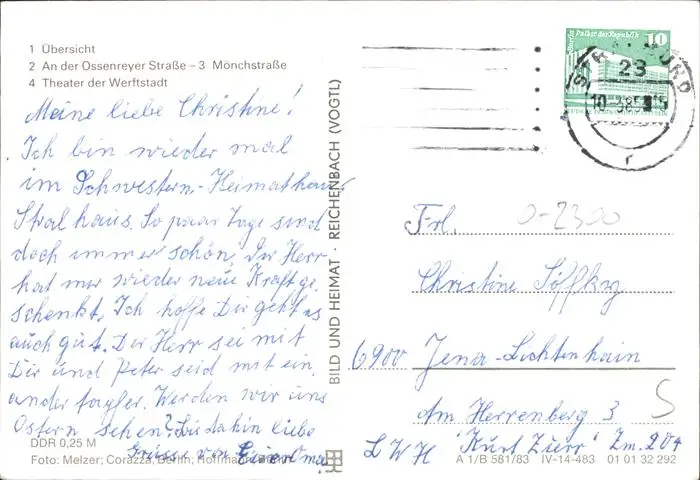 1 Übersicht
2 An der Ossenreyer Straße – 3 Mönchstraße
4 Theater der Werftstadt
Meine liebe Christine!
Ich bin wieder mal
im Schwestern-Heimathaus
Stralhaus. So paar Tage sind
doch immer schön. Der Herr
hat mir wieder neue Kraft ge
schenkt. Ich hoffe Dir geht es
auch gut. Der Herr sei mit
Dir und Peter seid mit ein,
ander
Werden wir uns
Ostern sehen? Bis dahin liebe
Grüsse von Eurer Oma
DDR 0,25 M
Foto: Melzer; Corazza, Berlin; Hoffmann
BILD UND HEIMAT · REICHENBACH (VOGTL)
Berlin Palast der Republik
10
23
10.-3.85
r
0-2300
Frl.
Christine
6900 Jena-Lichtenhain
Am Herrenberg 3
S
LWH "Kurt Zierr" Zm. 204
A 1/B 581/83 IV-14-483 01 01 32 292